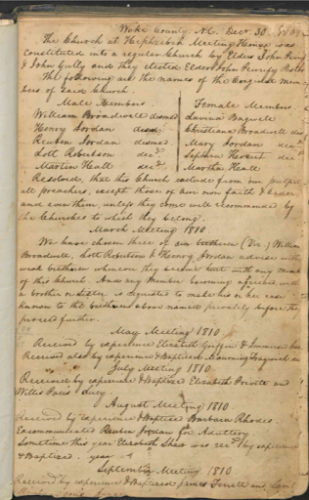 Wake County, N.C. Decr 30
The Church at Hephzibah Meeting House was
constituted into a regular Church by Elders John
& John Gully and they Elected Elder John Purify
The following are the names of the Original mem
bers of said Church.
Male Members
William Broadwell dismd
Henry Jordan dead
Reuben Jordan dismsd
Lott Robertson decd
Martin Heall decd
Female Members
Lavina Bagwell
Christiana Broadwell dis
Mary Jordan dec
dec
Martha Heall
Resolved, that this Church exclude from our pulpit
all preachers, except those of our own faith & order
and even them, unless they come well recommended by
the Churches to which they belong.
March Meeting 1810
We have chosen three of our brethren (Viz.) William
Broadwell, Lott Robertson & Henry Jordan advise with
weak brethren whereon they cannot with any
of this Church. And any member becoming with
a brother or sister, is requested to make his or her case
known to the brethren above named privately before they
proceed further.
May Meeting 1810
Received by experience Elizabeth Griffin &
Received also by experience & Baptised
July Meeting 1810
Received by experience & Baptised Elizabeth Privette and
Willis Lucy
August Meeting 1810
Received by experience & Baptised Barbara Rhodes
Excommunicated Reuben Jordan for Adultery
Sometime this year Elizabeth was recd by experience
& Baptised. year
September Meeting 1810
Received by experience & Baptised James Terrell and